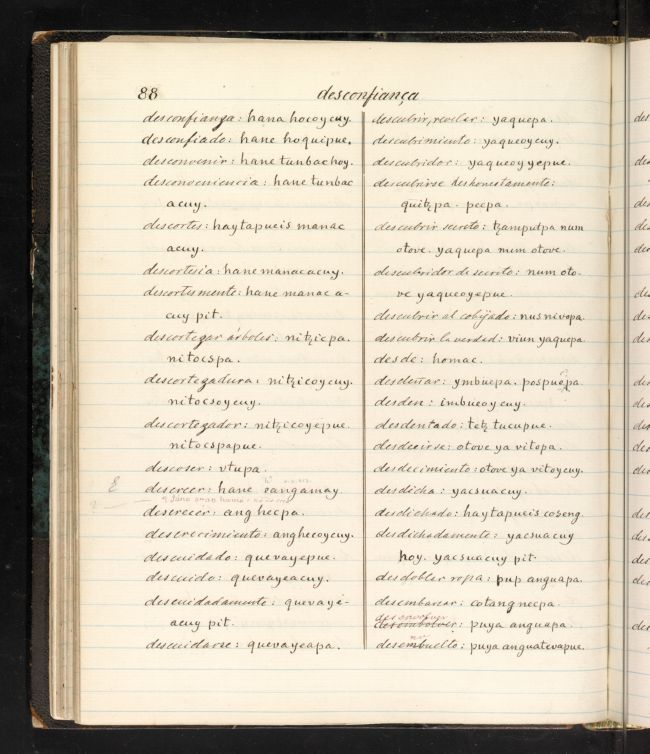 88
desconfiança
desconfianza: hana hocoycuy.
desconfiado: hane hoquipue.
desconvenir: hane tunbachoy.
desconveniencia: hane tunbac
acuy.
descortes: haytapueis manac
acuy.
descortesia: hane manacacuy.
descortesmente: hane manac a-
cuy pit.
descortezar árboles: nitzicpa.
nitocspa.
descortezadura: nitzicoycuy.
nitocsoycuy.
descortezador: nitzicoyepue.
nitocspapue.
descoser: vtupa.
descreer: hane oangamay
descrecer: anghecpa.
descrecimiento: anghecoycuy.
descuidado: quevayepue.
descuido: quevayeacuy.
descuidadamente: quevaye-
acuy pit.
descuidarse: quevayeapa.
descubrir, revelar: yaquepa.
descubrimiento: yaqueoycuy.
descubridor: yaqueoyyepue.
descubrirse deshonestamente:
quitzpa. pecpa.
descubrir secreto: tzampupa num
otove. yaquepa num otove.
descubridor de secreto: num oto-
ve yaqueoyepue.
descubrir al cobijado: nusnivopa.
descubrir la verdad: viun yaquepa.
desde: homac.
desdeñar: ymbuepa. pospuepa.
desden: imbueoycuy.
desdentado: tetz tucupue.
desdecirse: otove ya vitopa.
desdecimiento: otove ya vitoycuy.
desdicha: yacsuacuy.
desdichado: haytapueis coseng.
desdichadamente: yacsuacuy
hoy. yacsuacuy pit.
desdoblar ropa: pup anguapa.
desembarcar: cotangnecpa.
desembolver: puya anguapa.
desembuelto: puya anguatevapue.